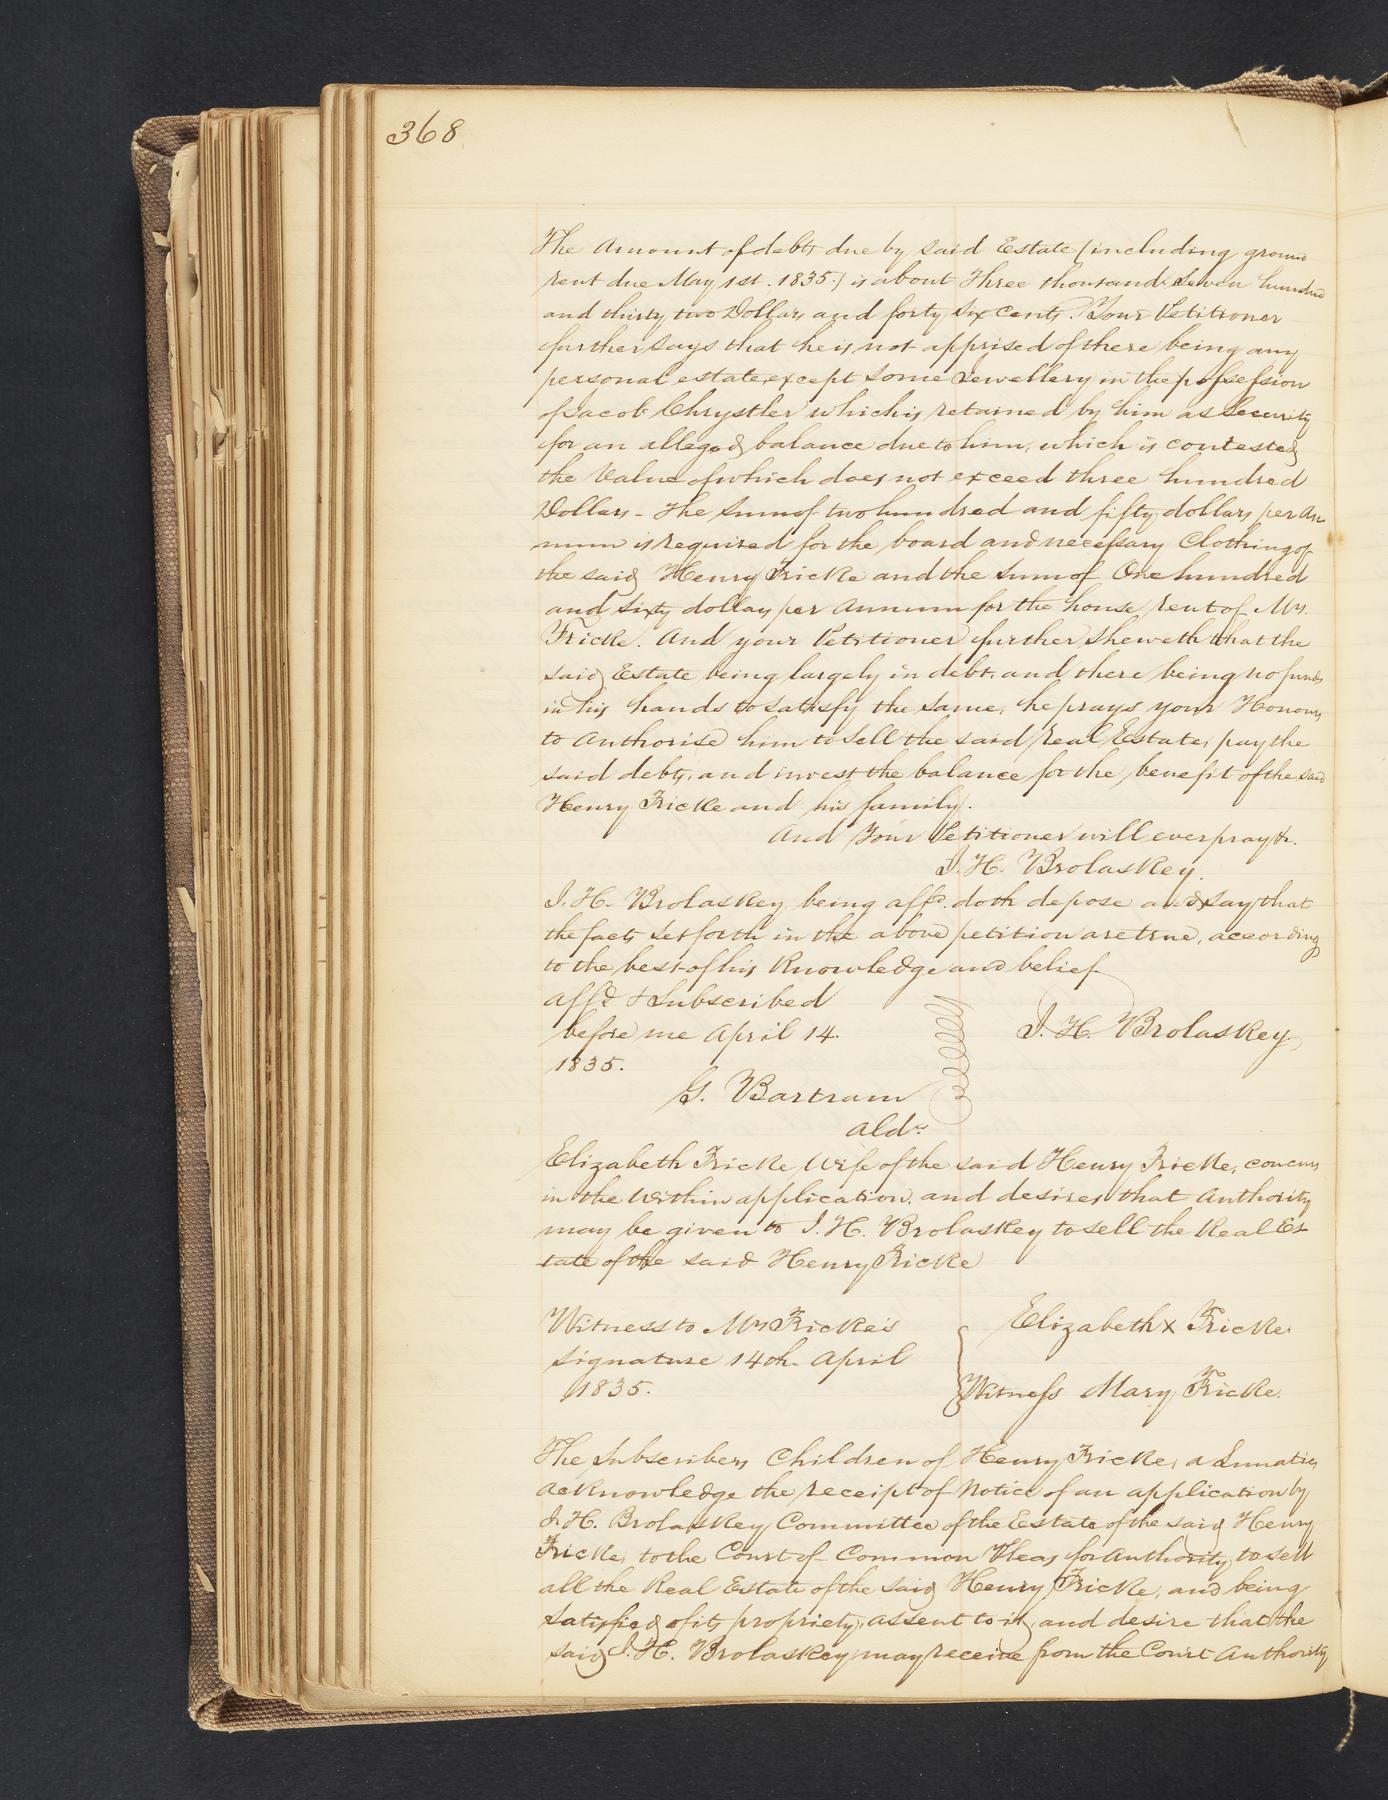 368
The Amount of debts due by said Estate (including ground
rent due May 1st. 1835.) is about Three thousand Seven hundred
and thirty two Dollars and forty six cents. Your Petitioner
further says that he is not apprised of there being any
personal estate except some Jewellery in the possession
of Jacob Chrystler which is retained by him as Security
for an alleged balance due to him, which is contested
the Value of which does not exceed three hundred
Dollars - The sum of two hundred and fifty dollars per An
num is required for the board and necessary Clothing of
the said Henry Fricke and the sum of One hundred
and sixty dollars per Annum for the house rent of Mrs.
Fricke. And your Petitioner further sheweth that the
said Estate being largely in debt, and there being no funds
in his hands to satisfy the same, he prays your Honours
to Authorise him to sell the said real Estate, pay the
said debts, and invest the balance for the benefit of the said
Henry Fricke and his family.
And Your Petitioner will ever pray &c.
J. H. Brolaskey.
J. H. Brolaskey being affd. doth depose and say that
the facts set forth in the above petition are true, according
to the best of his Knowledge and belief
Affd & Subscribed
before me April 14.
1835.
J. H. Brolaskey
G. Bartram
Aldr.
Elizabeth Fricke Wife of the said Henry Fricke, concurs
in the Within application, and desires that Authority
may be given to J. H. Brolaskey to sell the Real Es-
tate of the said Henry Fricke
Witness to Mrs Fricke's
signature 14th April
1835.
Elizabeth x Fricke
Witness Mary Fricke.
The Subscribers Children of Henry Fricke, a Lunatic,
acknowledge the receipt of Notice of an application by
J. H. Brolaskey Committee of the Estate of the said Henry
Fricke, to the Court of Common Pleas for Authority to sell
all the Real Estate of the said Henry Fricke, and being
satisfied of its propriety, assent to it, and desire that the
said J. H. Brolaskey may receive from the Court Authority